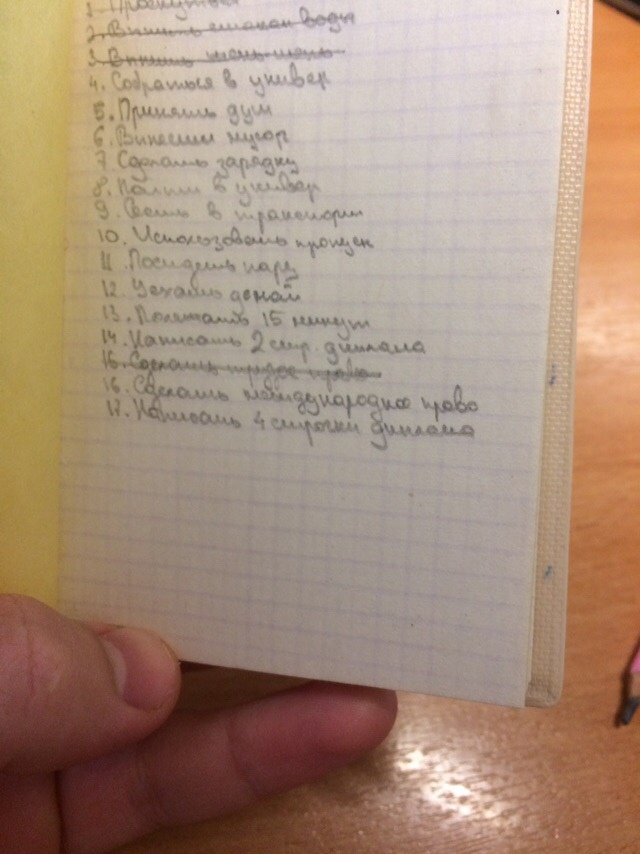 1. Проснуться
2. Выпить стакан воды
3. Выпить жень-шень
4. Собраться в универ
5. Принять душ
6. Вынести мусор
7 Сделать зарядку
8. Пойти в универ
9. Сесть в транспорт
10. Использовать пропуск
11. Посидеть пару
12. Уехать домой
13. Полежать 15 минут
14. Написать 2 стр. диплома
15. Сделать трудое право
16. Сделать международное право
17. Написать 4 строчки диплома